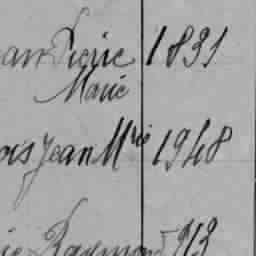 an Pierre 1831
Marie
ois Jean Mrie 1948
ie Raymond 913